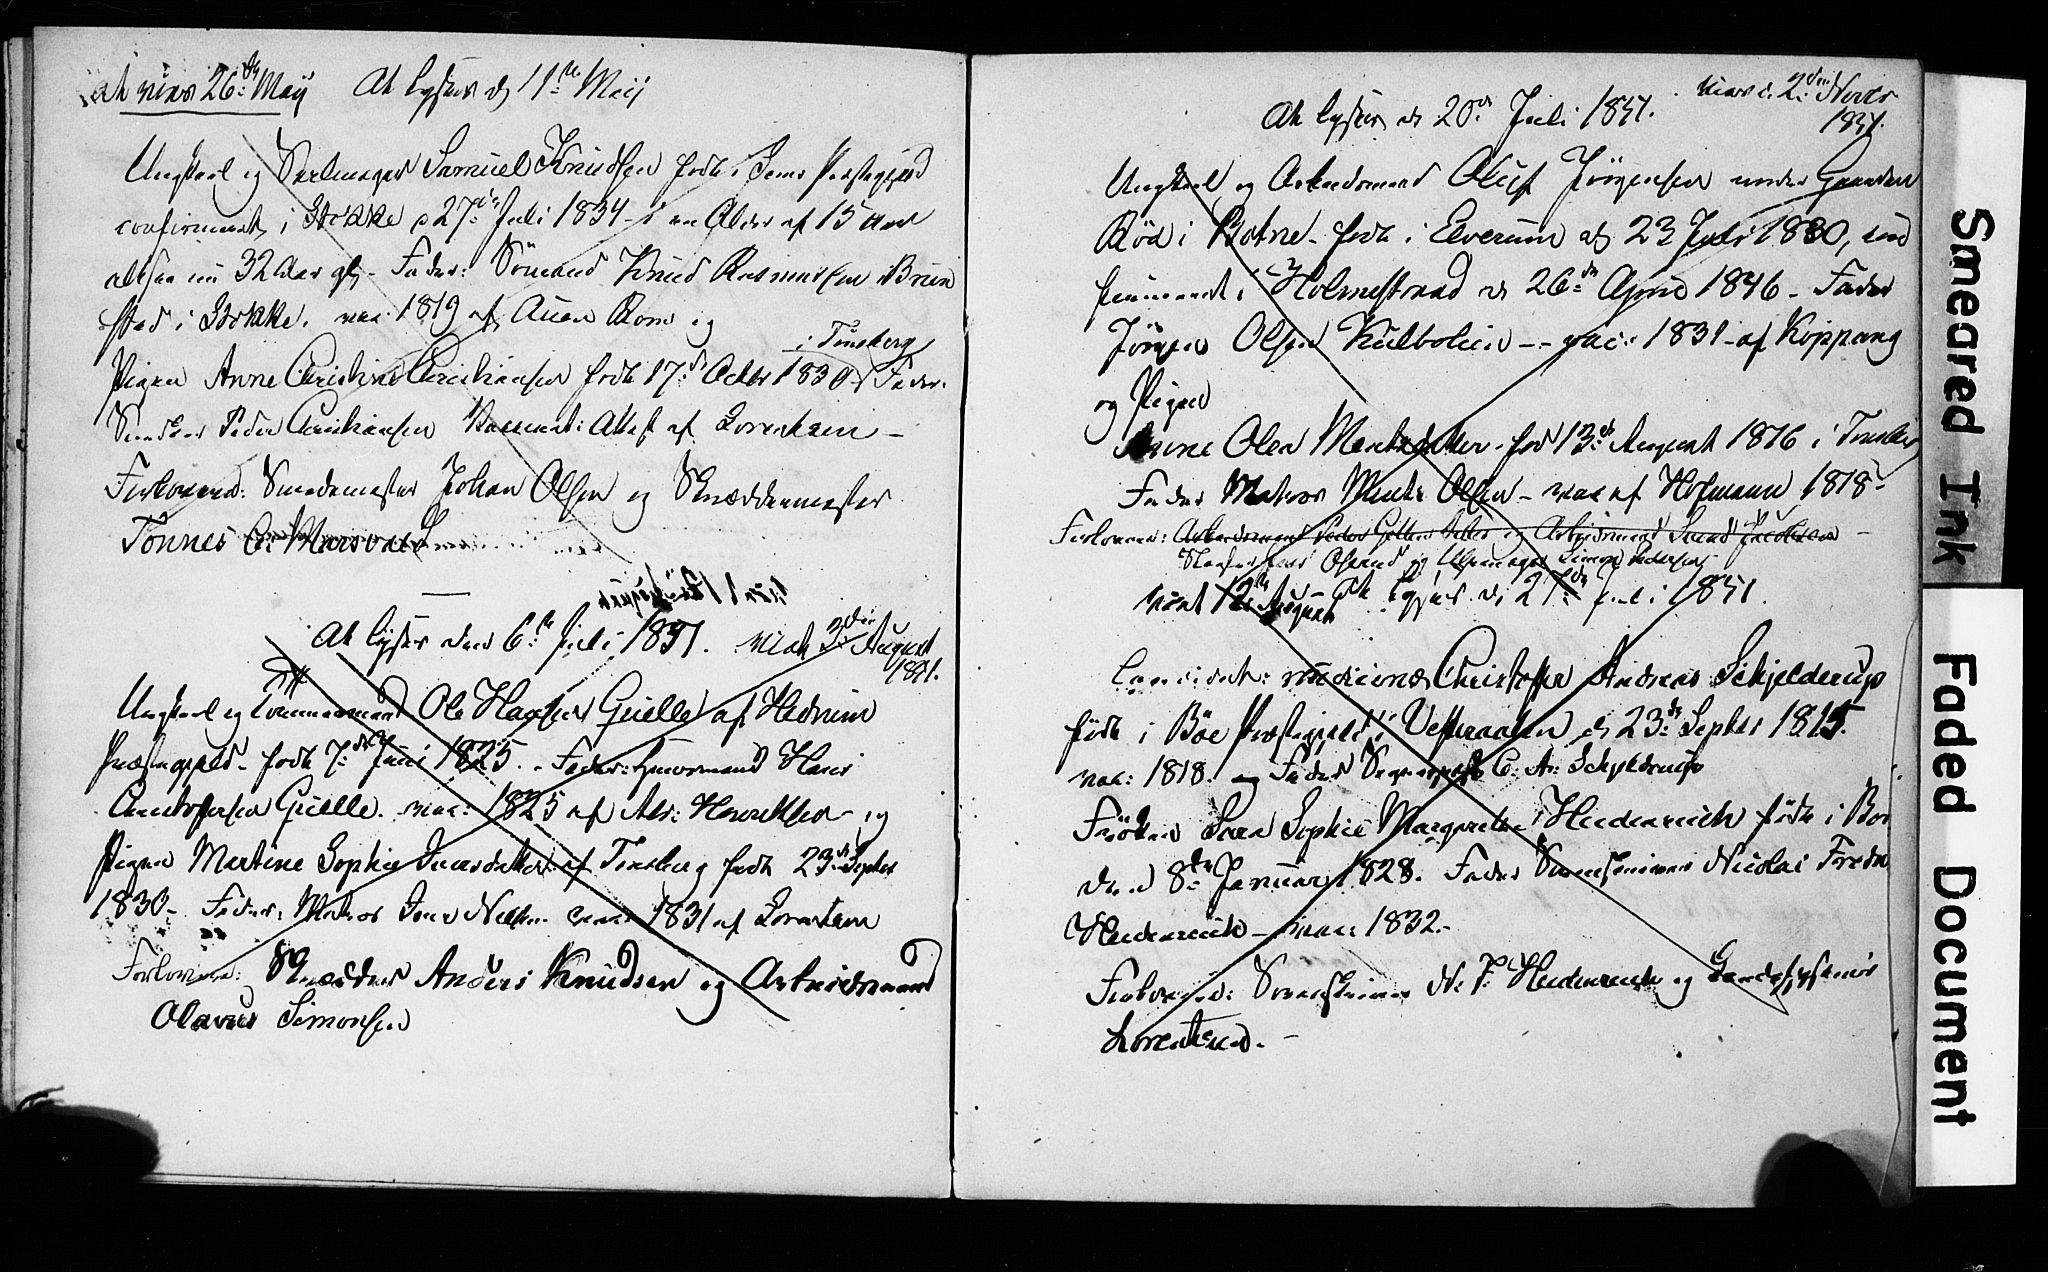 at vies 26de Maij At lyses d 11te Maij
Ungkarl og Seilmager Samuel Knudsen født i Sems Præstegjeld
confirmeret i Stokke d 27de Juli 1834 i en Alder af 15 Aar
altsaa nu 32 Aar gl. Fader: Sömand Knud Rasmussen Brun
stad i Stokke. vac: 1819 af Auen Rom og
i Tønsberg
Pigen Anne Christine Christiansen født 17de Octbr 1830 Fader:
Peder Christiansen Vaccinat: Attest af Lorentzen
Forlovere: Smedemester Johan Olsen og Skræddermester
Tönnes C: Marsvald
At lyses den 6te Juli 1851. viet 3die August
1851.
Ungkarl og Tømmermand Ole Hansen Gjelle af Hedrum
Præstegjeld født 7de Juni 1825. Fader: Huusmand Hans
Christophersen Gjelle. vac: 1825 af Henriksen og
Pigen Martine Sophie Jensdatter af Tønsberg født 23de Septbr
1830 Fader: Matros Jens Nielsen vac: 1831 af Lorentzen
Forlovere: Skrædder Anders Knudsen og Arbeidsmand
Olavus Simonsen
At lyses d 20de Juli 1851. viet d. 2den Novbr
1851.
Ungkarl og Arbeidsmand Oluf Jörgensen under Gaarden
Röd i Botne født i Elverum d 23 Juli 1830, con
firmeret i Holmestrand d 26de April 1846 Fader
Jörgen Olsen Kulbolien vac: 1831 af Koppang
og Pigen
Anne Olea Mentzdatter født 13de August 1816 i Tønsberg
Fader Matros Mentz Olsen vac af Hofmann 1818
Forlovere: Arbeidsmand Peder og Arbeidsmand Jacobsen
Olsen og Simon Pedersen
viet 12te August At lyses d 27de Juli 1851
Candidat: medicinæ Christoffer Andreas Schjelderup
født i Böe Præstegjeld i Vesteraalen d 23de Septbr 1815.
vac: 1818 og Fader Sognepræst C: A: Schjelderup
Fröken Sara Sophie Margrethe Heidenreich født i Boe
den 8de Januar 1828. Fader Sorenskriver Nicolai Fredr
Heidenreich vac: 1832.
Forlovere: Sorenskriver N. F. Heidenreich og Landsfysicus
Lorentzen.
Smeared Ink
Faded Document